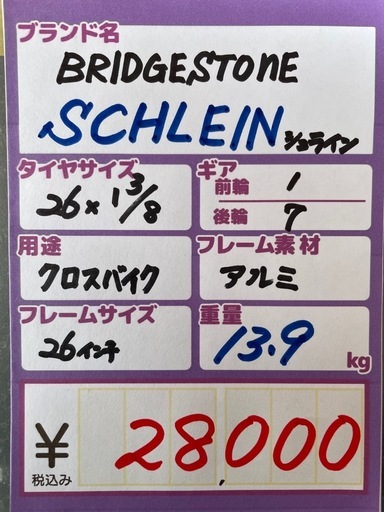 ブランド名
BRIDGESTONE
SCHLEIN シュライン
タイヤサイズ
26×1 3/8
ギア
前輪 1
後輪 7
用途
クロスバイク
フレーム素材
アルミ
フレームサイズ
26インチ
重量
13.9 kg
¥ 28,000
税込み